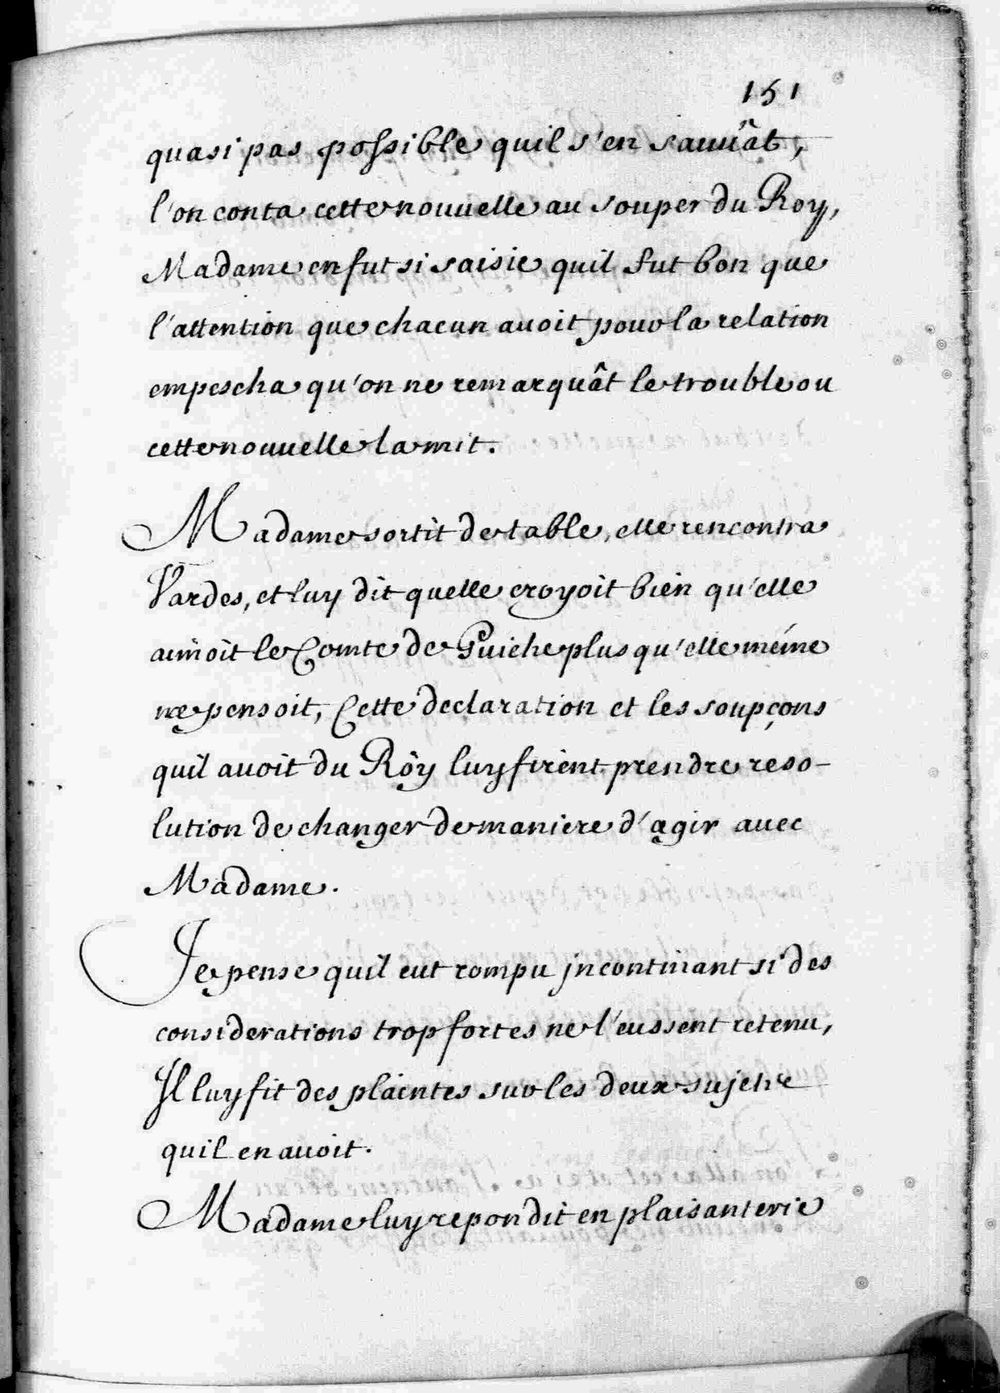 151
quasi pas possible quil s'en sauuât,
l'on conta cette nouuelle au souper du Roy,
Madame en fut si saisie, quil fut bon que
l'attention que chacun auoit pour la relation
empescha qu'on ne remarquât le trouble ou
cette nouuelle la mit.
Madame sortit de table, elle rencontra
Vardes, et luy dit quelle croyoit bien qu'elle
aimoit le Comte de Guiche plus qu'elle méme
ne pensoit, Cette declaration et les soupçons
quil auoit du Roy luy firent prendre reso-
lution de changer de maniere d'agir auec
Madame.
Je pense quil eut rompu jncontinant si des
considerations trop fortes ne l'eussent retenu,
Jl luy fit des plaintes sur les deux sujets
quil en auoit.
Madame luy repondit en plaisanterie